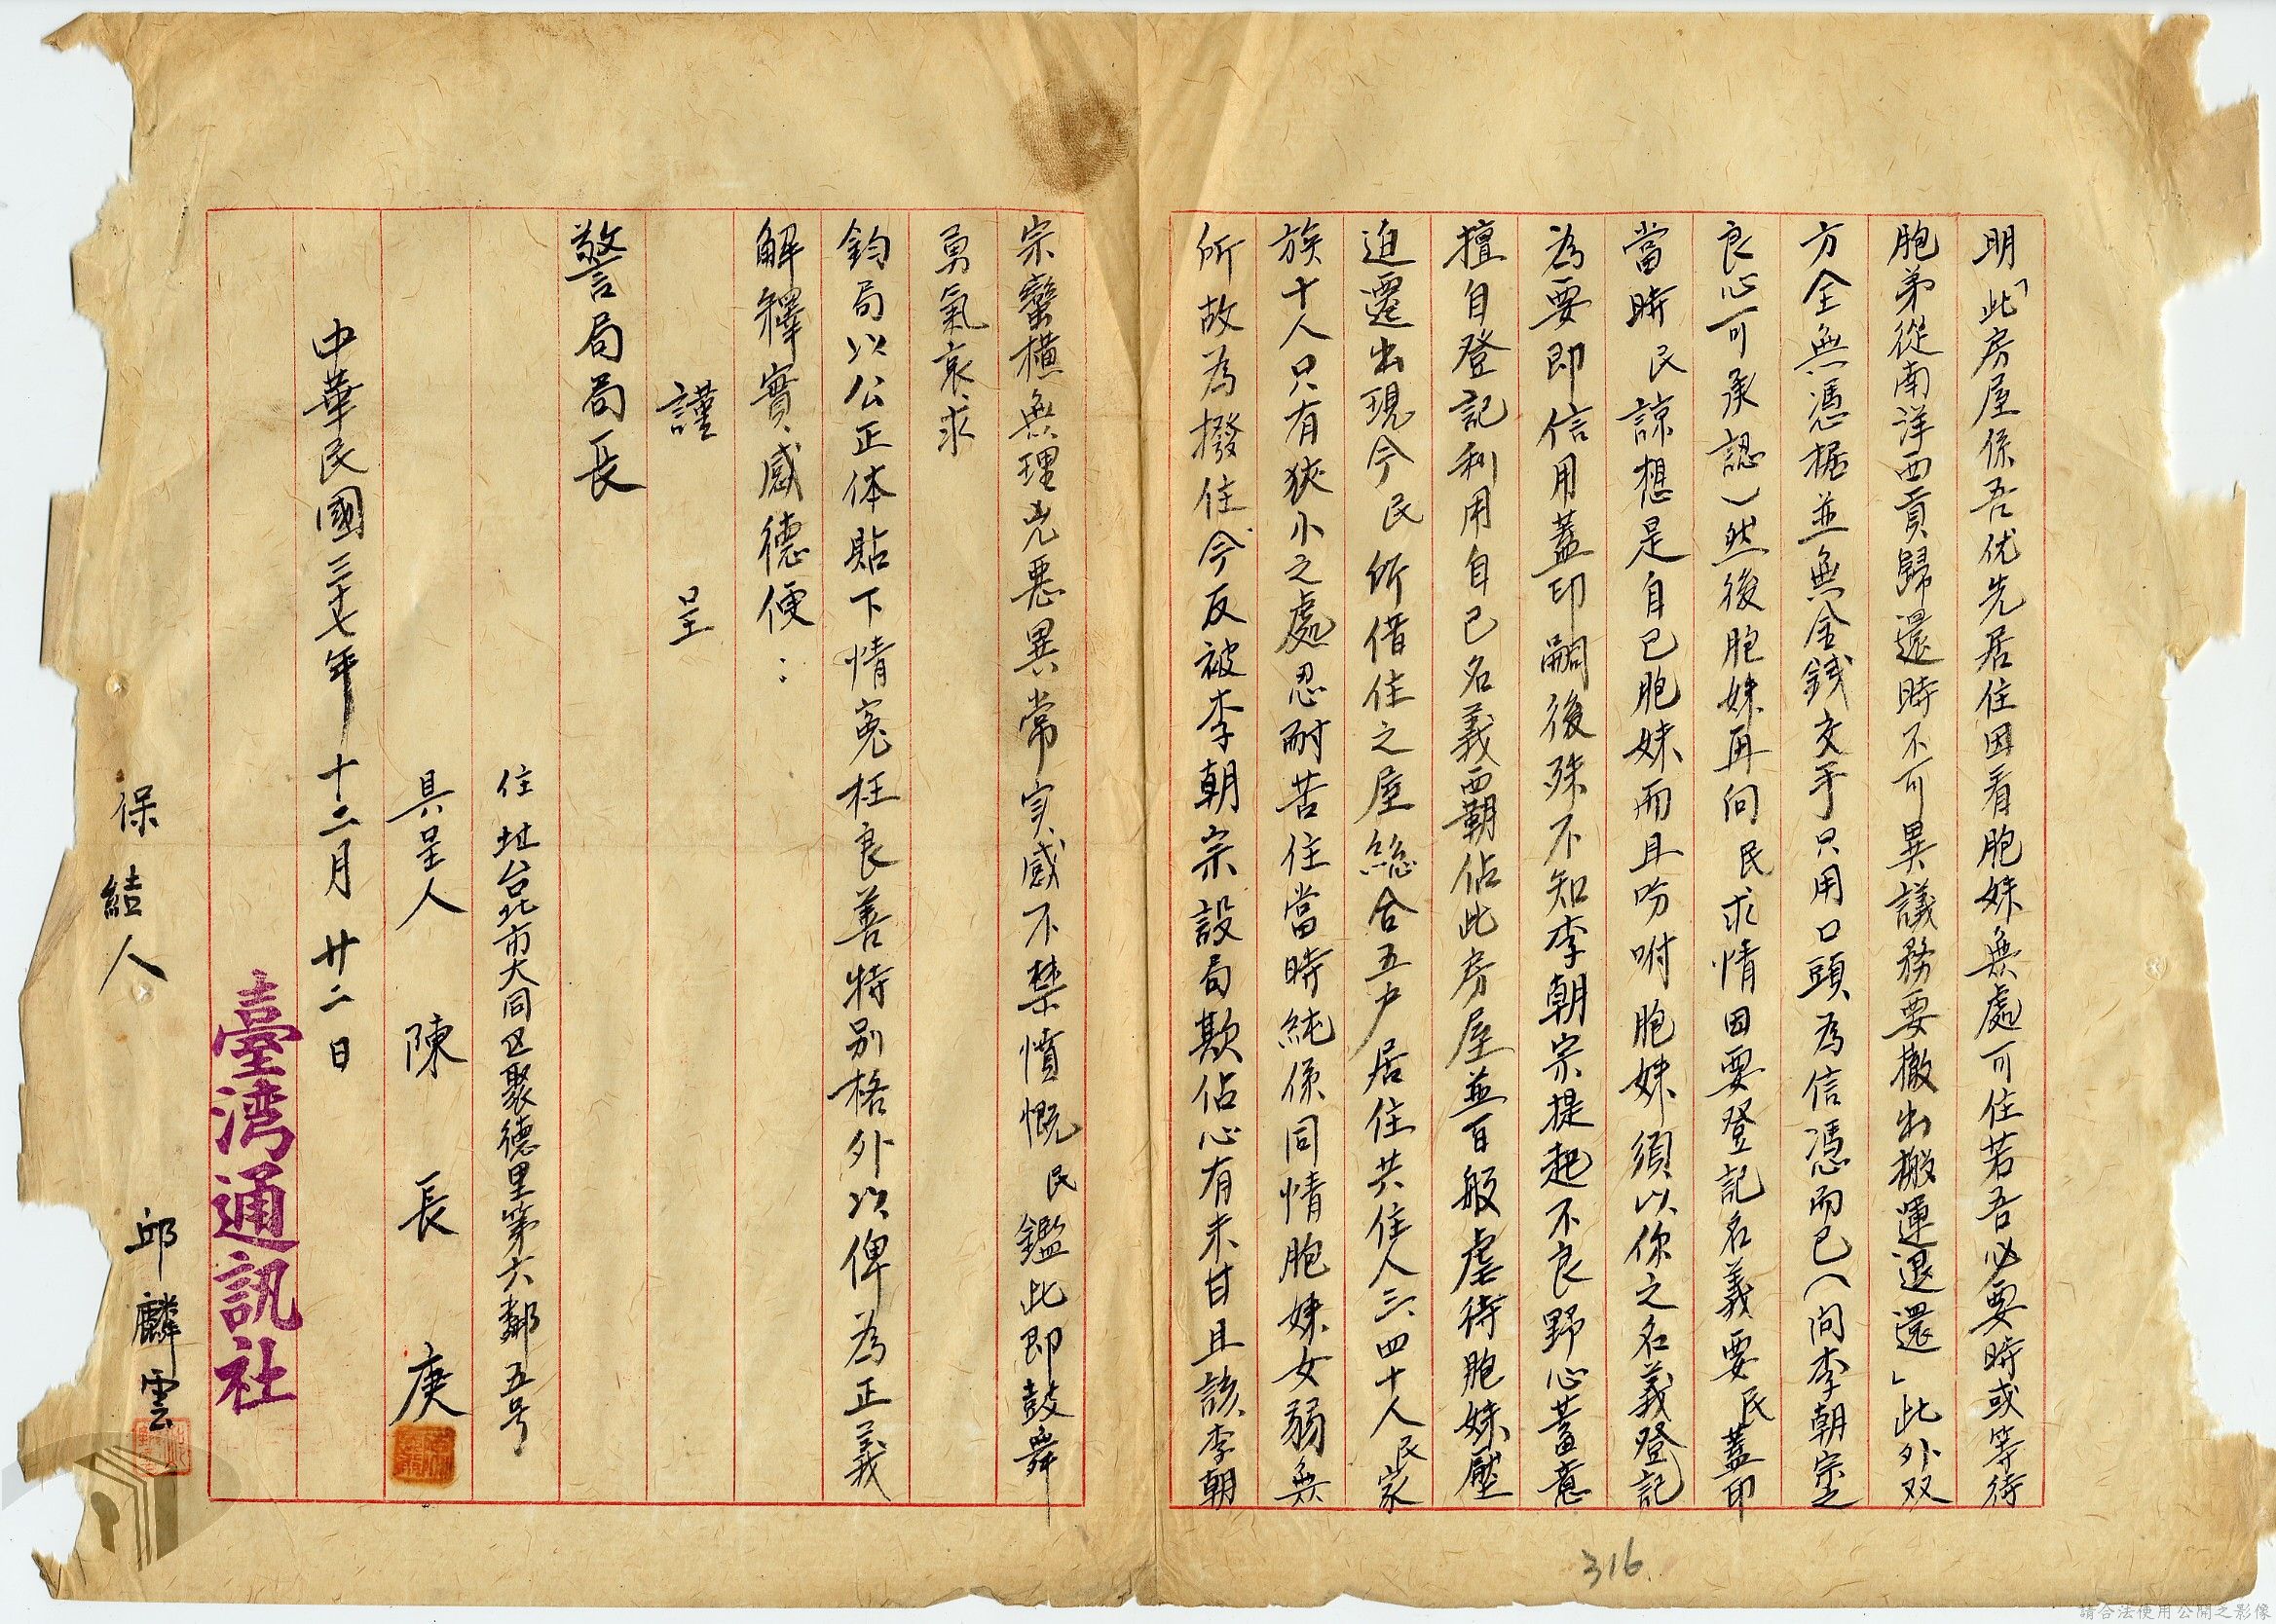 明「此房屋係吾优先居住因看胞妹無處可住若吾必要時或等待
胞弟從南洋西貢歸還時不可異議務要撤出搬運退還」此外双
方全無憑据並無金錢交手只用口頭為信憑而已（问李朝宗之
良心可承認）然後胞妹再问民求情因要登記名義要民蓋印
當時民諒想是自己胞妹而且吩咐胞妹須以你之名義登記
為要即信用蓋印嗣後殊不知李朝宗提起不良野心蓄意
擅自登記利用自己名義覇佔此房屋並百般虐待胞妹壓
迫遷出現今民所借住之屋総合五户居住共住人三、四十人民家
族十人只有狹小之處忍耐苦住當時純係同情胞妹女弱無
所故為撥住今反被李朝宗設局欺佔心有未甘且該李朝
宗蠻橫無理兇惡異常実感不禁憤慨民鑑此即鼓舞
勇氣哀求
鈞局以公正体貼下情冤枉良善特别格外以俾為正義
解釋實感德便：
謹 呈
警局局長
住址台北市大同区聚德里第六鄰五号
具呈人 陳長庚
中華民國三十七年十二月廿二日
臺湾通訊社
保結人 邱麟雲
316
請合法使用公開之影像